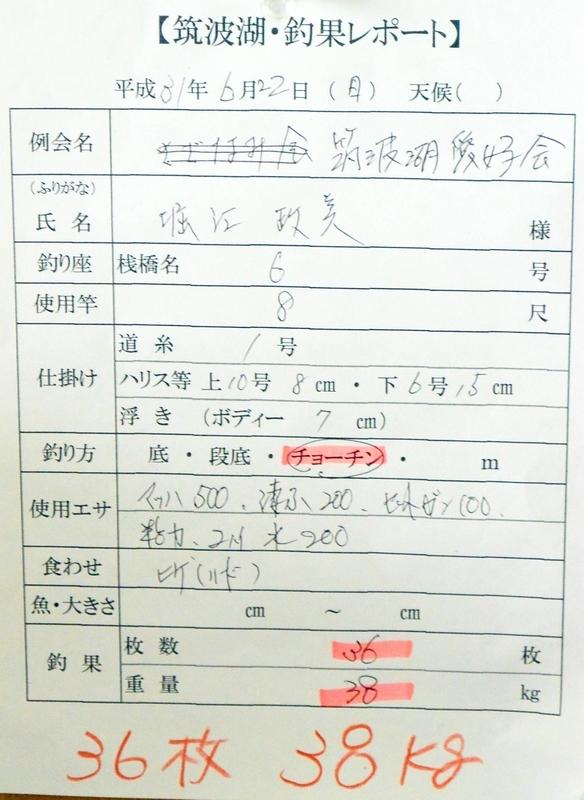 【筑波湖・釣果レポート】
平成31年6月22日 (日) 天候( )
例会名 筑波湖愛好会
(ふりがな)
氏名 堀江 政美 様
釣り座 桟橋名 6 号
使用竿 8 尺
仕掛け 道糸 1号
ハリス等 上10号 8cm ・ 下6号 15cm
浮き (ボディー 7 cm)
釣り方 底 ・ 段底 ・ チョーチン ・ m
使用エサ マッハ500、凄ふ200、セットガン100、
粘力、2ハ 水200
食わせ ヒゲ(ハード)
魚・大きさ cm ～ cm
釣果 枚数 36 枚
重量 38 kg
36枚 38Kg